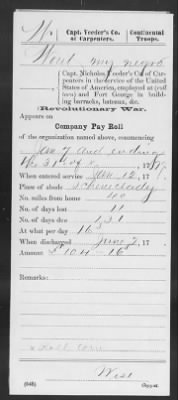 W
Capt. Veeder's Co. of Carpenters.
Continental Troops.
Wout my negro
Capt. Nicholas Veeder's Co. of Carpenters in the service of the United States of America, employed at (old town) and Fort George in building barracks, bateaux, &c.
(Revolutionary War.)
Appears on
Company Pay Roll
of the organization named above, commencing
Jany 7 and ending
When entered service Jan 12, 17
Place of abode Schenectady
No. miles from home 40
No. of days lost 11
No. of days due 131
At what per day 16
When discharged June 2, 17
Amount $ 104 16
Remarks:
West
(646)
Copyist.